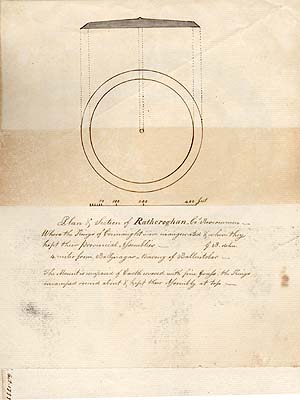 70 100 200 400 feet
Plan & Section of Rathcroghan, Co. Roscommon
Where the Kings of Connaught were inaugurated & where they
kept their provincial Assemblies
4 miles from Ballinagar
The Mount is composed of Earth covered with fine Grass, the Kings
encamped round about & kept their Assembly at top